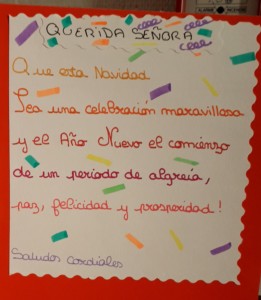 QUERIDA SEÑORA
Que esta Navidad
Sea una celebración maravillosa
y el Año Nuevo el comienzo
de un período de algreía,
paz, felicidad y prosperidad!
Saludos Cordiales